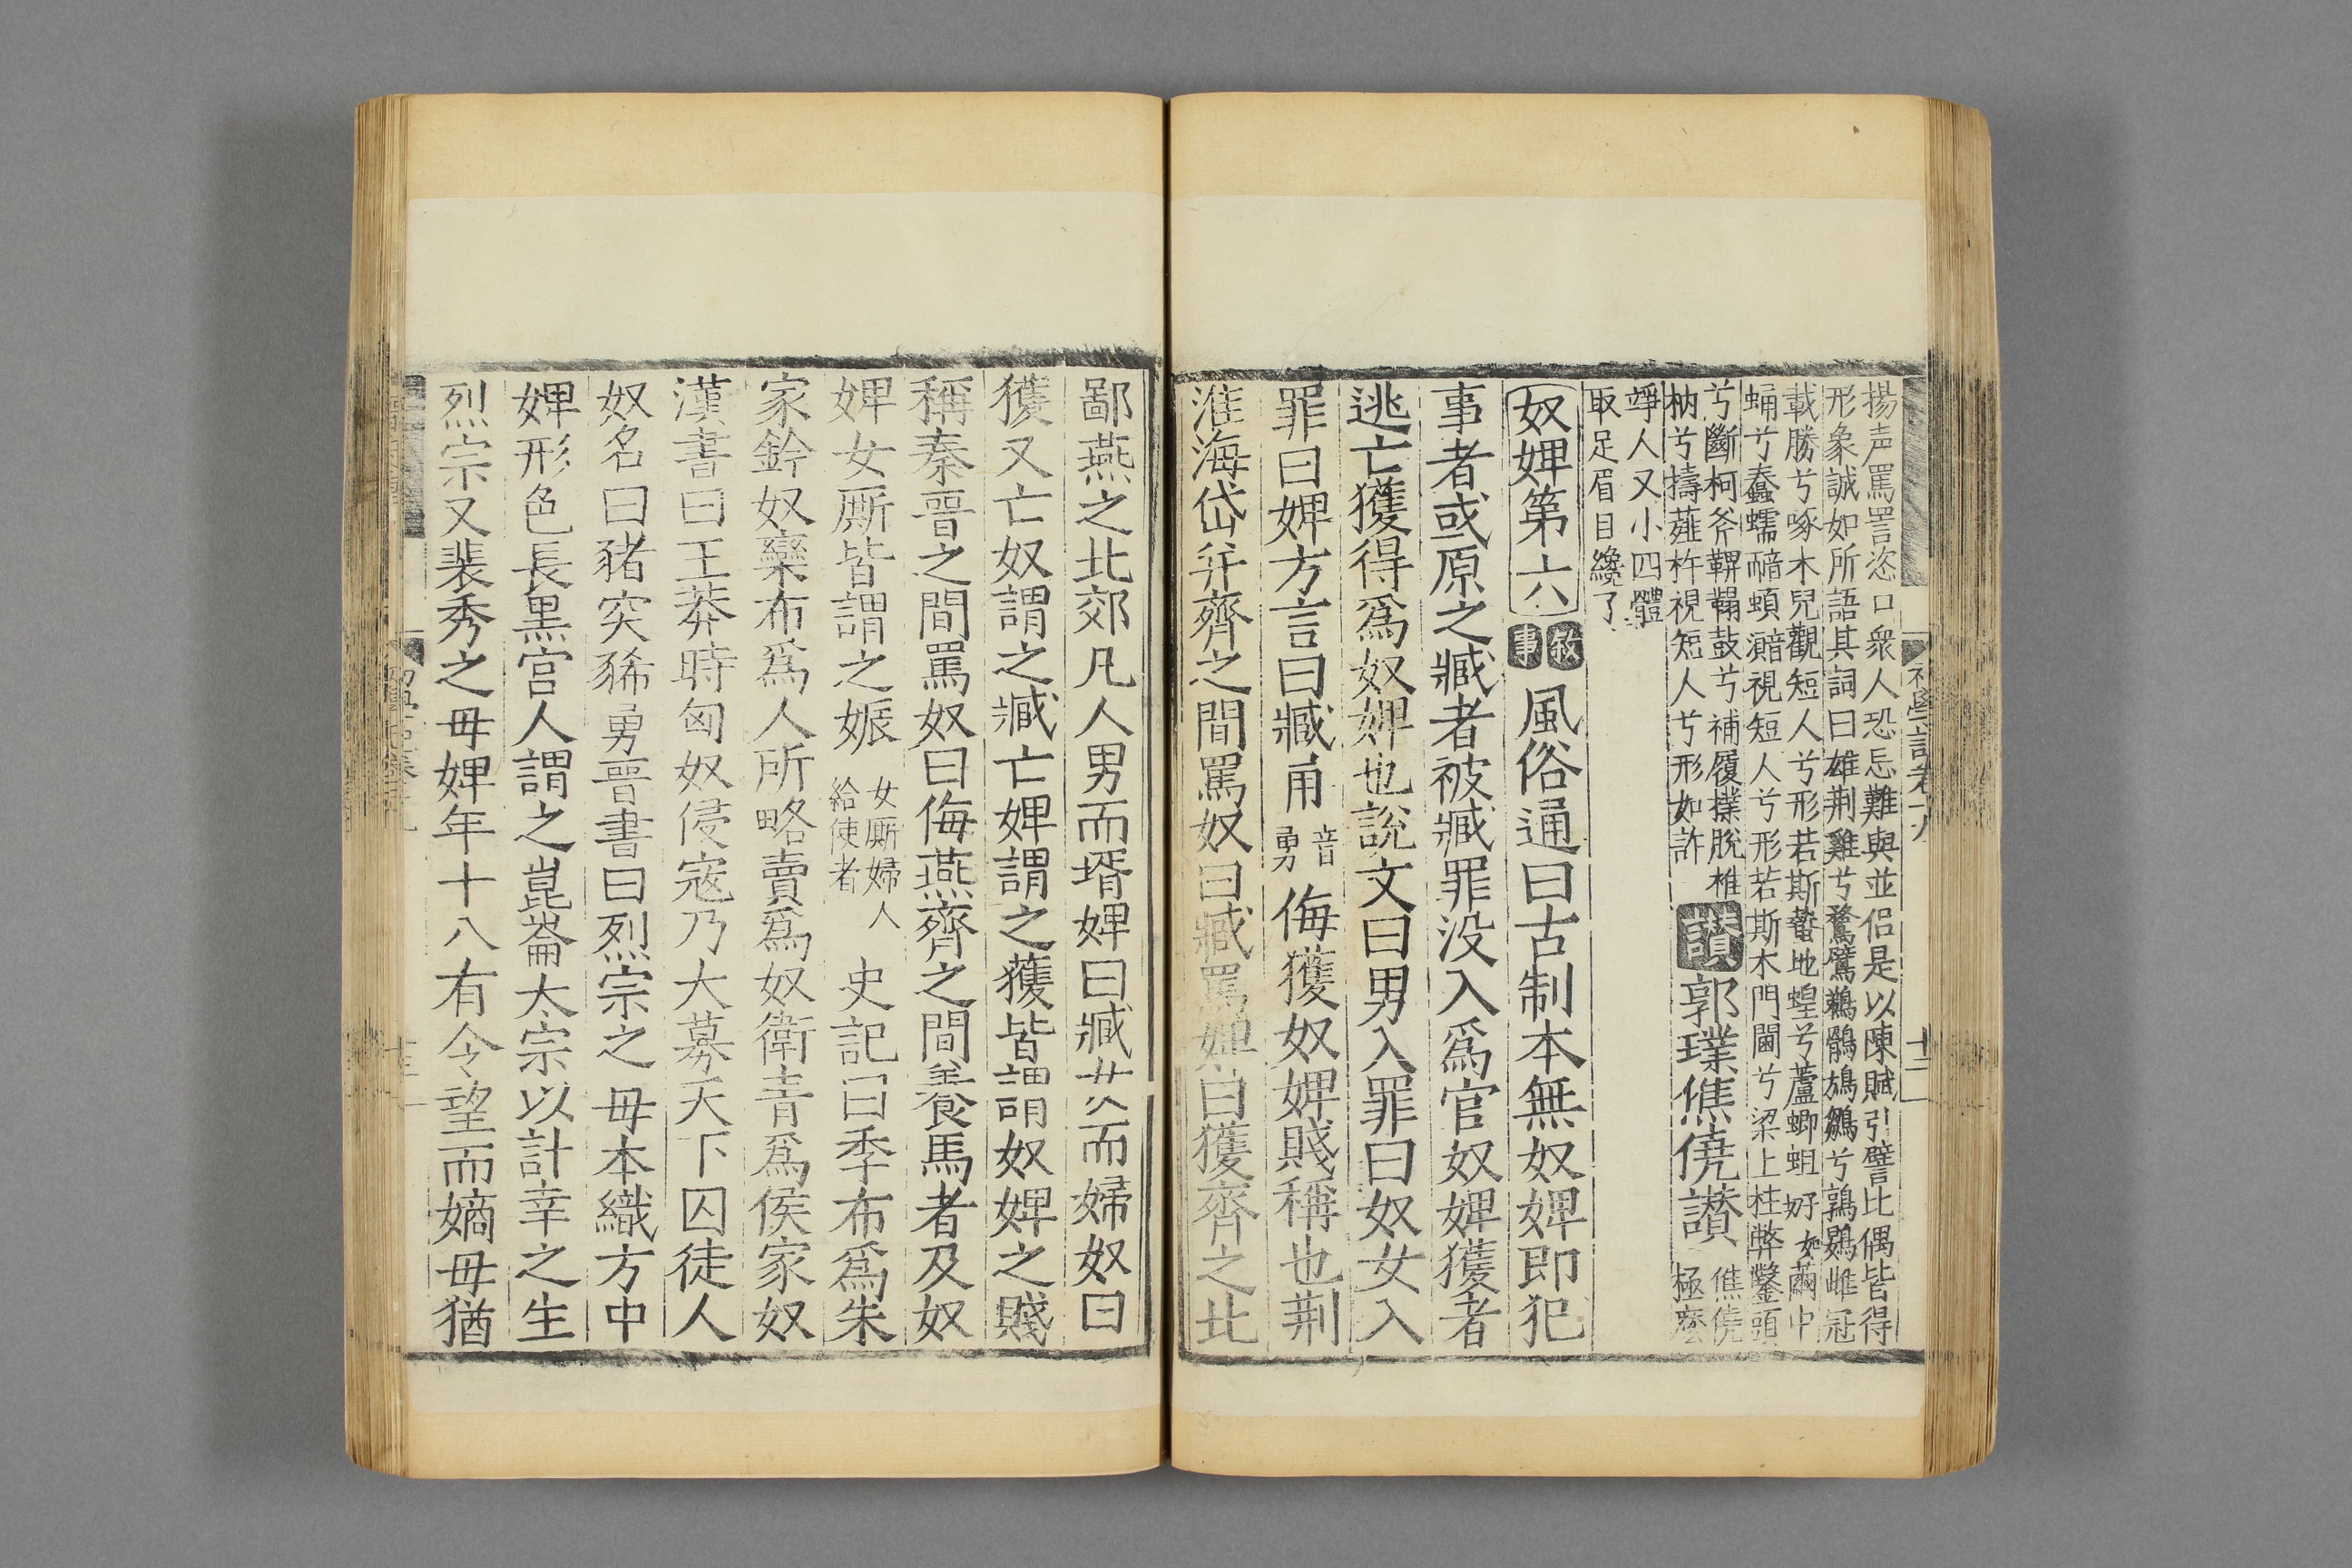 揚声罵詈恣口衆人恐忌難與並侶是以陳賦引譬比偶皆得
形象誠如所語其詞曰雄荆雞兮鶩鷿鵜鶻鳩鶵兮鶉鷃雌冠
戴勝兮啄木兒觀短人兮形若斯蟄地蝗兮蘆蝍蛆好如繭中
蛹兮蠶蠕視短人兮形若斯木門閫兮梁上柱弊鑿頭
兮斷柯斧鞞鞨鼓兮補履撲脫椎
枘兮擣薤杵視短人兮形如許
讃郭璞僬僥讃
僬僥極麽
竫人又小四體
取足眉目纔了
奴婢第六
敘事
風俗通曰古制本無奴婢即犯
事者或原之臧者被臧罪没入爲官奴婢獲者
逃亡獲得爲奴婢也說文曰男入罪曰奴女入
罪曰婢方言曰臧甬音勇侮獲奴婢賤稱也荆
淮海岱并齊之間罵奴曰臧罵婢曰獲齊之北
鄙燕之北郊凡人男而壻婢曰臧女而婦奴曰
獲又亡奴謂之臧亡婢謂之獲皆謂奴婢之賤
稱秦晉之間罵奴曰侮燕齊之間養馬者及奴
婢女厮皆謂之娠女厮婦人給使者史記曰季布爲朱
家鈐奴欒布爲人所略賣爲奴衛青爲侯家奴
漢書曰王莽時匈奴侵寇乃大募天下囚徒人
奴名曰豬突豨勇晉書曰烈宗之毋本織方中
婢形色長黒宫人謂之崑崙太宗以計幸之生
烈宗又裴秀之毋婢年十八有令望而嫡毋猶
初學記卷十九
十二